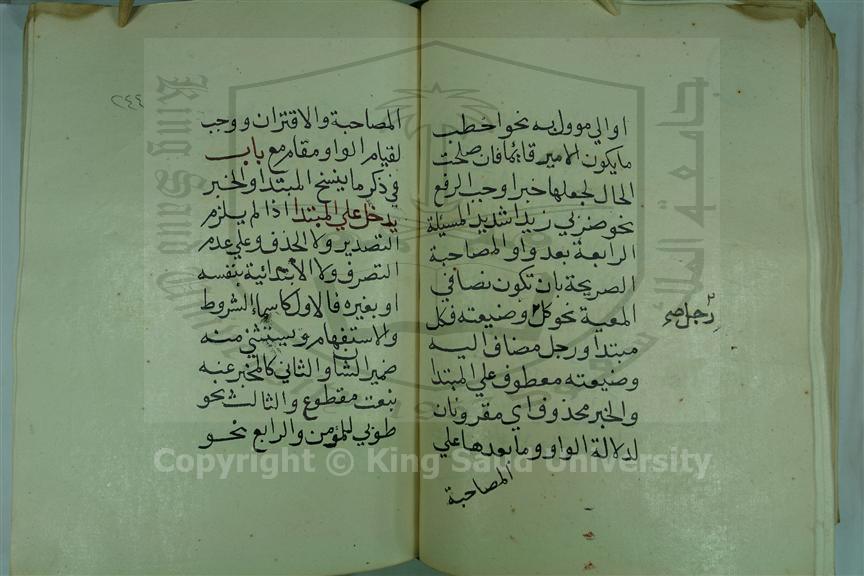 او الي موول به نحو اخطب
ما يكون الامير قايما فان صلحت
الحال لجعلها خبرا وجب الرفع
نحو ضربي زيدا شديد المسيلة
الرابعة بعد واو المصاحبة
الصريحة بان تكون نصا في
المعية نحو كل وضيعته فكل
مبتدا ورجل مضاف اليه
وضيعته معطوف علي المبتدا
والخبر محذوف اي مقرونان
لدلالة الواو وما بعدها علي
المصاحبة
رجل صح
٢٤٤
المصاحبة والاقتران ووجب
لقيام الواو مقام مع باب
في ذكر ما ينسخ المبتدا والخبر
يدخل علي المبتدا اذا لم يلزم
التصدير ولا الحذف وعلي عدم
التصرف ولا الابتدائية بنفسه
او بغيره فالاول كاسماء الشروط
والاستفهام ويستثني منه
ضمير الشان والثاني كالمخبر عنه
بنعت مقطوع والثالث نحو
طوبي للمؤمن والرابع نحو
Copyright © King Saud University
King Saud University
جامعة الملك